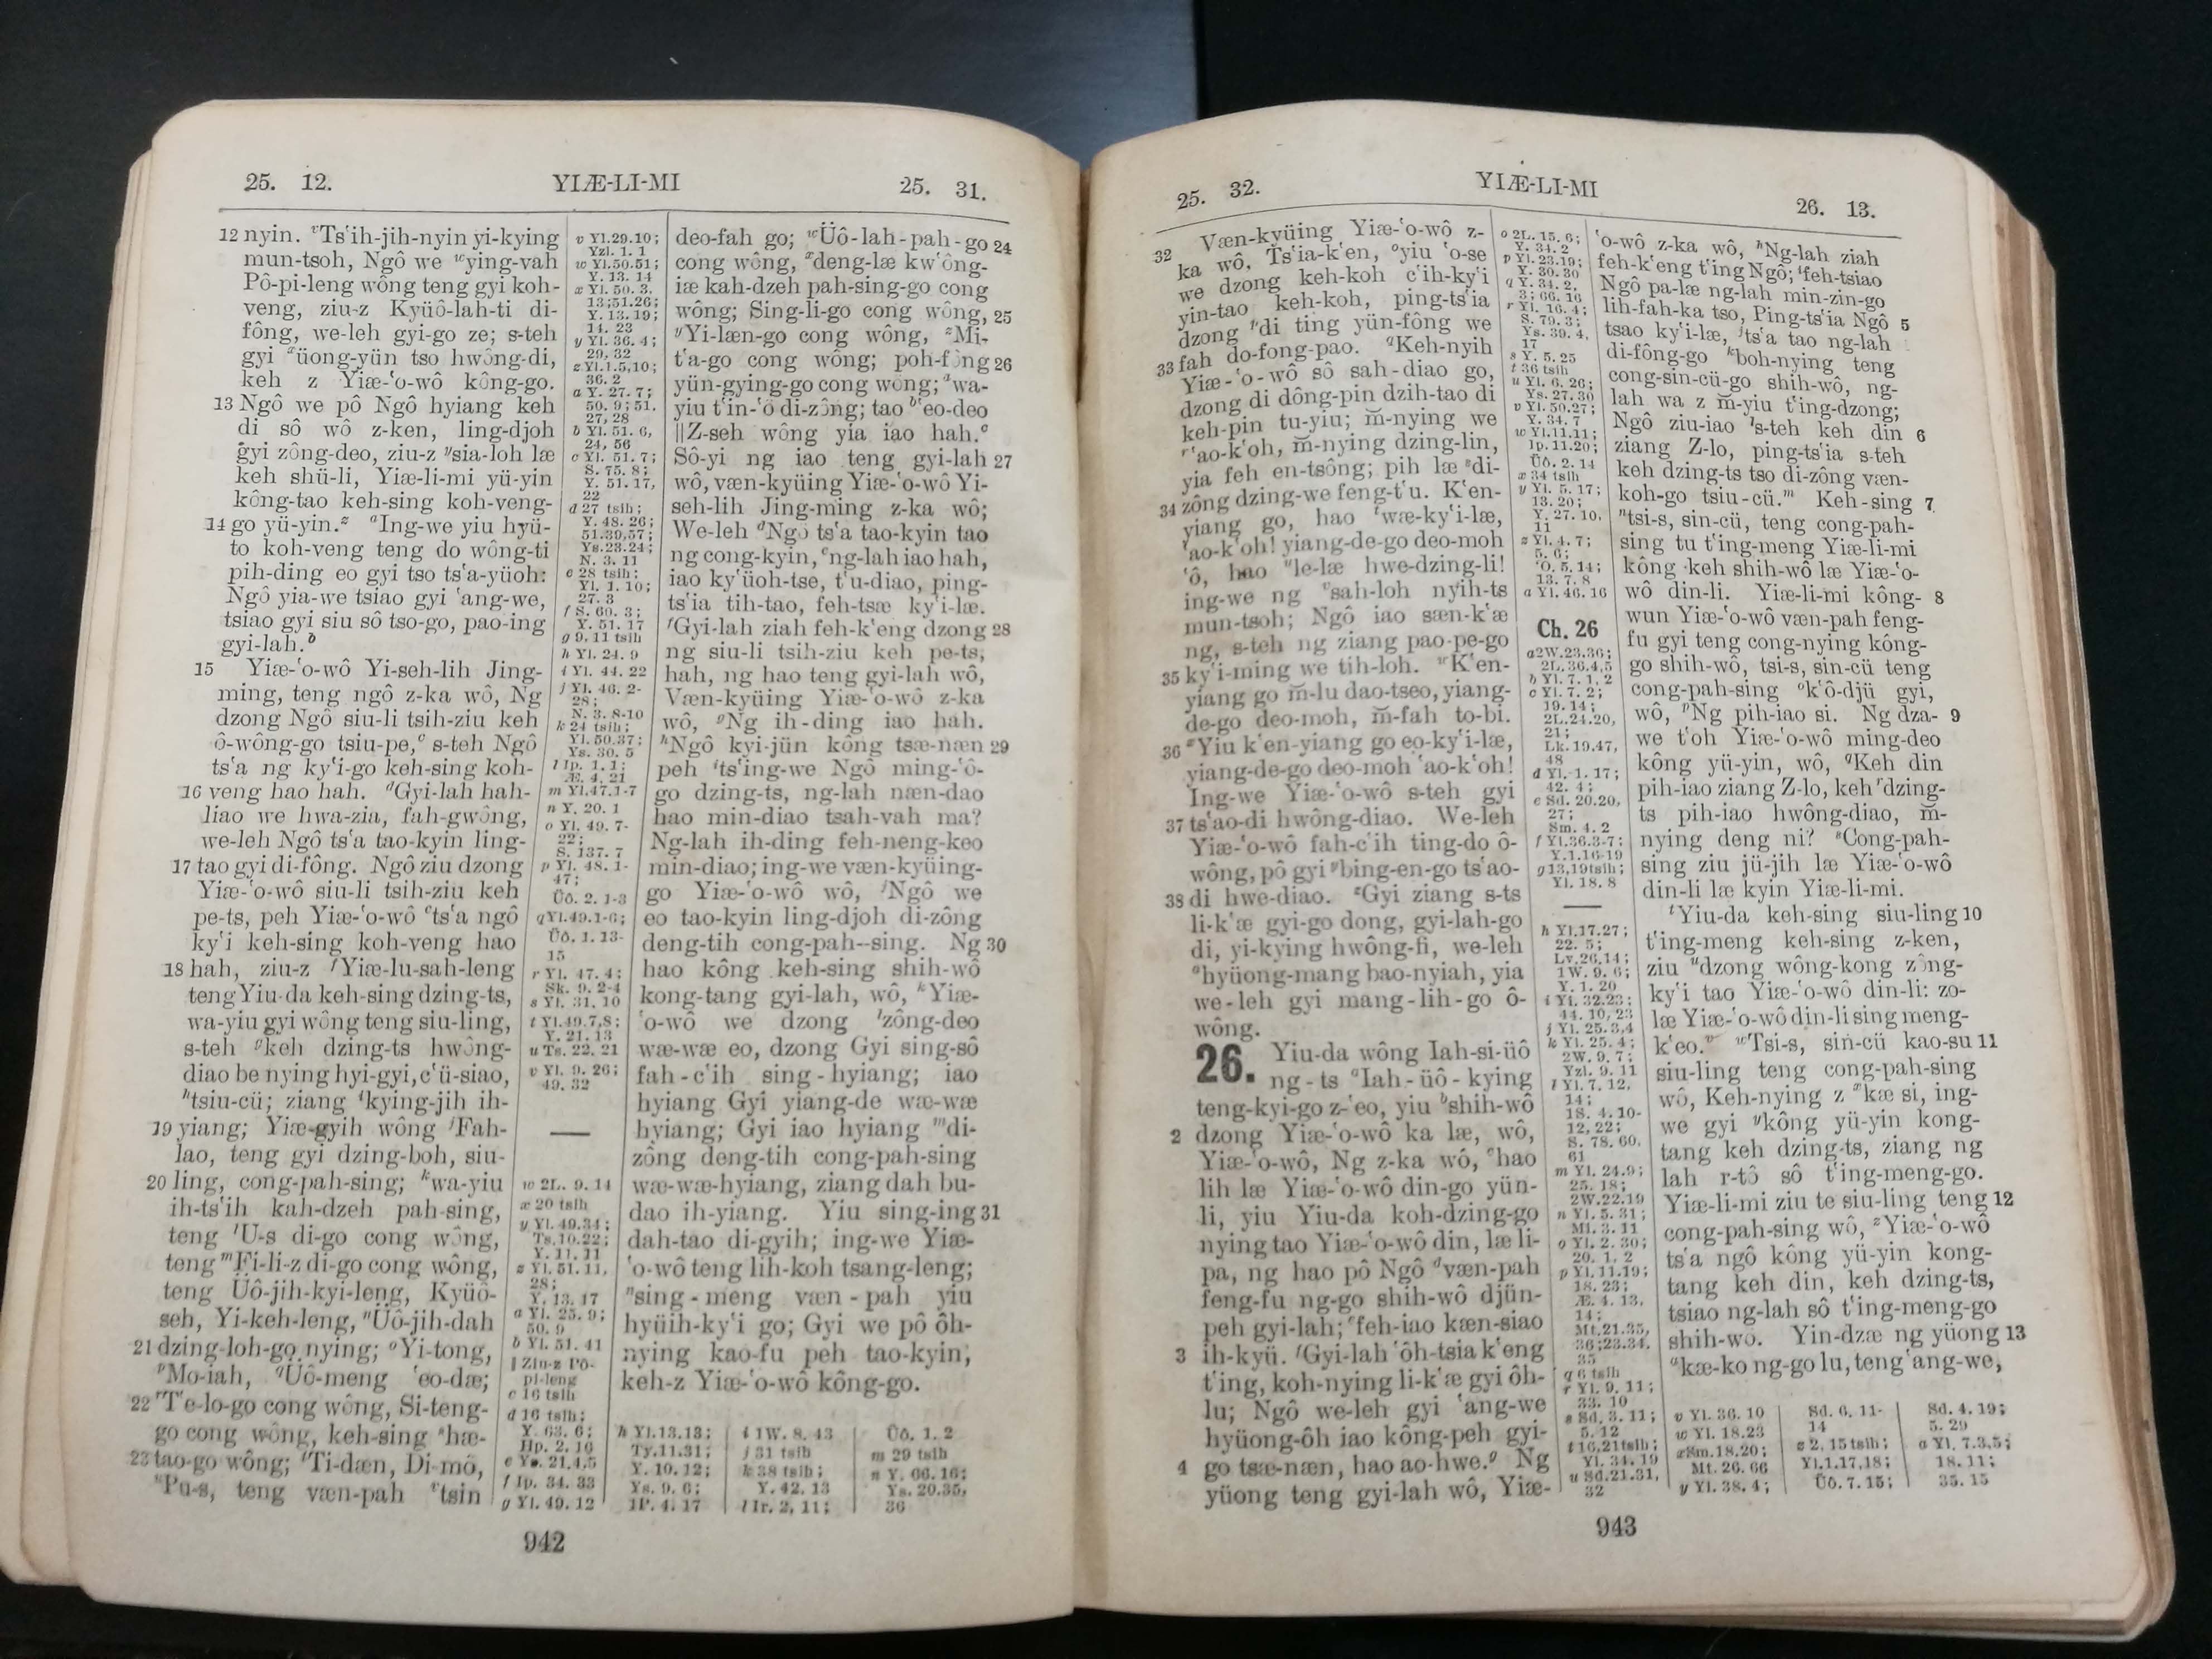 25. 12.
YIÆ-LI-MI
25. 31.
12 nyin. ᵛTs‘ih-jih-nyin yi-kying
mun-tsoh, Ngô we ʷying-vah
Pô-pi-leng wông teng gyi koh-
veng, ziu-z Kyüô-lah-ti di-
fông, we-leh gyi-go ze; s-teh
gyi ˣüong-yün tso hwông-di,
keh z Yiæ-‘o-wô kông-go.
13 Ngô we pô Ngô hyiang keh
di sô wô z-ken, ling-djoh
gyi zông-deo, ziu-z ʸsia-loh læ
keh shü-li, Yiæ-li-mi yü-yin
kông-tao keh-sing koh-veng-
14 go yü-yin.ᶻ ᵃIng-we yiu hyü-
to koh-veng teng do wông-ti
pih-ding eo gyi tso ts‘a-yüoh:
Ngô yia-we tsiao gyi ‘ang-we,
tsiao gyi siu sô tso-go, pao-ing
gyi-lah.ᵇ
15 Yiæ-‘o-wô Yi-seh-lih Jing-
ming, teng ngô z-ka wô, Ng
dzong Ngô siu-li tsih-ziu keh
ô-wông-go tsiu-pe,ᶜ s-teh Ngô
ts‘a ng ky‘i-go keh-sing koh-
16 veng hao hah. ᵈGyi-lah hah-
liao we hwa-zia, fah-gwông,
we-leh Ngô ts‘a tao-kyin ling-
17 tao gyi di-fông. Ngô ziu dzong
Yiæ-‘o-wô siu-li tsih-ziu keh
pe-ts, peh Yiæ-‘o-wô ᵉts‘a ngô
ky‘i keh-sing koh-veng hao
18 hah, ziu-z ᶠYiæ-lu-sah-leng
teng Yiu-da keh-sing dzing-ts,
wa-yiu gyi wông teng siu-ling,
s-teh ᵍkeh dzing-ts hwông-
diao be nying hyi-gyi, c‘ü-siao,
ʰtsiu-cü; ziang ⁱkying-jih ih-
19 yiang; Yiæ-gyih wông ʲFah-
lao, teng gyi dzing-boh, siu-
20 ling, cong-pah-sing; ᵏwa-yiu
ih-ts‘ih kah-dzeh pah-sing,
teng ˡU-s di-go cong wông,
teng ᵐFi-li-z di-go cong wông,
teng Üô-jih-kyi-leng, Kyüô-
seh, Yi-keh-leng, ⁿÜô-jih-dah
21 dzing-loh-go nying; ᵒYi-tong,
ᵖMo-iah, ᑫÜô-meng ‘eo-dæ;
22 ʳT‘e-lo-go cong wông, Si-teng-
go cong wông, keh-sing ˢhæ-
23 tao-go wông; ᵗTi-dæn, Di-mô,
ᵘPu-s, teng væn-pah ᵛtsin
v Yl.29.10;
Yzl. 1. 1
w Yl.50.51;
Y. 13. 14
x Yl. 50. 3.
13;51.26;
Y. 13. 19;
14. 23
y Yl. 36. 4;
29, 32
z Yl.1.5,10;
36. 2
a Y. 27. 7;
50. 9; 51.
27, 28
b Yl. 51. 6,
24, 56
c Yl. 51. 7;
S. 75. 8;
Y. 51. 17,
22
d 27 tsih;
Y. 48. 26;
51.39,57;
Ys.23.24;
N. 3. 11
e 28 tsih;
Yl. 1. 10;
27. 3
f S. 60. 3;
Y. 51. 17
g 9. 11 tsih
h Yl. 24. 9
i Yl. 44. 22
j Yl. 46. 2-
28;
N. 3. 8-10
k 24 tsih;
Yl. 50.37;
Ys. 30. 5
l Ip. 1. 1;
Æ. 4. 21
m Yl.47.1-7
n Y. 20. 1
o Yl. 49. 7-
22;
S. 137. 7
p Yl. 48. 1-
47;
Üô. 2. 1-3
q Yl.49.1-6;
Üô. 1. 13-
15
r Yl. 47. 4;
Sk. 9. 2-4
s Yl. 31. 10
t Yl.49.7,8;
Y. 21. 13
u Ts. 22. 21
v Yl. 9. 26;
49. 32
w 2L. 9. 14
x 20 tsih
y Yl. 49.34;
Ts.10.22;
Y. 11. 11
z Yl. 51. 11,
28;
Y. 13. 17
a Yl. 25. 9;
50. 9
b Yl. 51. 41
‖ Ziu-z Pô-
pi-leng
c 16 tsih
d 16 tsih;
Y. 63. 6;
Hp. 2. 16
e Ys. 21.4,5
f Ip. 34. 33
g Yl. 49. 12
deo-fah go; ʷÜô-lah-pah-go 24
cong wông, ˣdeng-læ kw‘ông-
iæ kah-dzeh pah-sing-go cong
wông; Sing-li-go cong wông, 25
ʸYi-læn-go cong wông, ᶻMi-
t‘a-go cong wông; poh-fông 26
yün-gying-go cong wông; ᵃwa-
yiu t‘in-‘ô di-zông; tao ᵇ‘eo-deo
‖Z-seh wông yia iao hah.ᶜ
Sô-yi ng iao teng gyi-lah 27
wô, væn-kyüing Yiæ-‘o-wô Yi-
seh-lih Jing-ming z-ka wô;
We-leh ᵈNgô ts‘a tao-kyin tao
ng cong-kyin, ᵉng-lah iao hah,
iao ky‘üoh-tse, t‘u-diao, ping-
ts‘ia tih-tao, feh-tsæ ky‘i-læ.
ᶠGyi-lah ziah feh-k‘eng dzong 28
ng siu-li tsih-ziu keh pe-ts,
hah, ng hao teng gyi-lah wô,
Væn-kyüing Yiæ-‘o-wô z-ka
wô, ᵍNg ih-ding iao hah.
ʰNgô kyi-jün kông tsæ-næn 29
peh ⁱts‘ing-we Ngô ming-‘ô-
go dzing-ts, ng-lah næn-dao
hao min-diao tsah-vah ma?
Ng-lah ih-ding feh-neng-keo
min-diao; ing-we væn-kyüing-
go Yiæ-‘o-wô wô, ʲNgô we
eo tao-kyin ling-djoh di-zông
deng-tih cong-pah--sing. Ng 30
hao kông keh-sing shih-wô
kong-tang gyi-lah, wô, ᵏYiæ-
‘o-wô we dzong ˡzông-deo
wæ-wæ eo, dzong Gyi sing-sô
fah-c‘ih sing-hyiang; iao
hyiang Gyi yiang-de wæ-wæ
hyiang; Gyi iao hyiang ᵐdi-
zông deng-tih cong-pah-sing
wæ-wæ-hyiang, ziang dah bu-
dao ih-yiang. Yiu sing-ing 31
dah-tao di-gyih; ing-we Yiæ-
‘o-wô teng lih-koh tsang-leng;
ⁿsing-meng væn-pah yiu
hyüih-ky‘i go; Gyi we pô ôh-
nying kao-fu peh tao-kyin;
keh-z Yiæ-‘o-wô kông-go.
h Yl.13.13;
Ty.11.31;
Y. 10. 12;
Ys. 9. 6;
1P. 4. 17
i 1W. 8. 43
j 31 tsih
k 38 tsih;
Y. 42. 13
l Ir. 2, 11;
Üô. 1. 2
m 29 tsih
n Y. 66. 16;
Ys. 20.35,
36
942
25. 32.
YIÆ-LI-MI
26. 13.
32 Væn-kyüing Yiæ-‘o-wô z-
ka wô, Ts‘ia-k‘en, ᵒyiu ‘o-se
we dzong keh-koh c‘ih-ky‘i
yin-tao keh-koh, ping-ts‘ia
dzong ᵖdi ting yün-fông we
33 fah do-fong-pao. ᑫKeh-nyih
Yiæ-‘o-wô sô sah-diao go,
dzong di dông-pin dzih-tao di
keh-pin tu-yiu; m̆-nying we
ʳ‘ao-k‘oh, m̆-nying dzing-lin,
yia feh en-tsông; pih læ ˢdi-
34 zông dzing-we feng-t‘u. K‘en-
yiang go, hao ᵗwæ-ky‘i-læ,
‘ao-k‘oh! yiang-de-go deo-moh
‘ô, hao ᵘle-læ hwe-dzing-li!
ing-we ng ᵛsah-loh nyih-ts
mun-tsoh; Ngô iao sæn-k‘æ
ng, s-teh ng ziang pao-pe-go
35 ky‘i-ming we tih-loh. ʷK‘en-
yiang go m̆-lu dao-tseo, yiang-
de-go deo-moh, m̆-fah to-bi.
36 ˣYiu k‘en-yiang go eo-ky‘i-læ,
yiang-de-go deo-moh ‘ao-k‘oh!
Ing-we Yiæ-‘o-wô s-teh gyi
37 ts‘ao-di hwông-diao. We-leh
Yiæ-‘o-wô fah-c‘ih ting-do ô-
wông, pô gyi ʸbing-en-go ts‘ao-
38 di hwe-diao. ᶻGyi ziang s-ts
li-k‘æ gyi-go dong, gyi-lah-go
di, yi-kying hwông-fi, we-leh
ᵃhyüong-mang bao-nyiah, yia
we-leh gyi mang-lih-go ô-
wông.
26. Yiu-da wông Iah-si-üô
ng-ts ᵃIah-üô-kying
teng-kyi-go z-‘eo, yiu ᵇshih-wô
2 dzong Yiæ-‘o-wô ka læ, wô,
Yiæ-‘o-wô, Ng z-ka wô, ᶜhao
lih læ Yiæ-‘o-wô din-go yün-
li, yiu Yiu-da koh-dzing-go
nying tao Yiæ-‘o-wô din, læ li-
pa, ng hao pô Ngô ᵈvæn-pah
feng-fu ng-go shih-wô djün-
peh gyi-lah; ᵉfeh-iao kæn-siao
3 ih-kyü. ᶠGyi-lah ‘ôh-tsia k‘eng
t‘ing, koh-nying li-k‘æ gyi ôh-
lu; Ngô we-leh gyi ‘ang-we
hyüong-ôh iao kông-peh gyi-
4 go tsæ-næn, hao ao-hwe.ᵍ Ng
yüong teng gyi-lah wô, Yiæ-
o 2L. 15. 6;
Y. 34. 2
p Yl. 23.19;
Y. 30. 30
q Y. 34. 2,
3; 66. 16
r Yl. 16. 4;
S. 79. 3;
Ys. 39. 4,
17
s Y. 5. 25
t 36 tsih
u Yl. 6. 26;
Ys. 27. 30
v Yl. 50.27;
Y. 34. 7
w Yl.11.11;
Ip. 11.20;
Üô. 2. 14
x 34 tsih
y Yl. 5. 17;
13. 20;
Y. 27. 10,
11
z Yl. 4. 7;
5. 6;
‘O. 5. 14;
13. 7. 8
a Yl. 46. 16
Ch. 26
a 2W.23.36;
2L.36.4,5
b Yl. 7. 1, 2
c Yl. 7. 2;
19. 14;
2L.24.20,
21;
Lk. 19.47,
48
d Yl. 1. 17;
42. 4;
e Sd. 20.20,
27;
Sm. 4. 2
f Yl.36.3-7;
Y.1.16-19
g 13,19tsih;
Yl. 18. 8
h Yl.17.27;
22. 5;
Lv.26.14;
1W. 9. 6;
Y. 1. 20
i Yl. 32.23;
44. 10, 23
j Yl. 25. 3,4
k Yl. 25. 4;
2W. 9. 7;
Yzl. 9. 11
l Yl. 7. 12,
14;
1S. 4. 10-
12, 22;
S. 78. 60,
61
m Yl. 24.9;
25. 18;
2W.22.19
n Yl. 5. 31;
Mi. 3. 11
o Yl. 2. 30;
20. 1, 2
p Yl. 11.19;
18. 23;
Æ. 4. 13,
14;
Mt.21.35,
36;23.34,
35
q 6 tsih
r Yl. 9. 11;
33. 10
s Sd. 3. 11;
5. 12
t 16,21tsih;
Yl. 34. 19
u Sd.21.31,
32
‘o-wô z-ka wô, ʰNg-lah ziah
feh-k‘eng t‘ing Ngô; ⁱfeh-tsiao
Ngô pa-læ ng-lah min-zin-go
lih-fah-ka tso, Ping-ts‘ia Ngô 5
tsao ky‘i-læ, ʲts‘a tao ng-lah
di-fông-go ᵏboh-nying teng
cong-sin-cü-go shih-wô, ng-
lah wa z m̆-yiu t‘ing-dzong;
Ngô ziu-iao ˡs-teh keh din 6
ziang Z-lo, ping-ts‘ia s-teh
keh dzing-ts tso di-zông væn-
koh-go tsiu-cü.ᵐ Keh-sing 7
ⁿtsi-s, sin-cü, teng cong-pah-
sing tu t‘ing-meng Yiæ-li-mi
kông keh shih-wô læ Yiæ-‘o-
wô din-li. Yiæ-li-mi kông- 8
wun Yiæ-‘o-wô væn-pah feng-
fu gyi teng cong-nying kông-
go shih-wô, tsi-s, sin-cü teng
cong-pah-sing ᵒk‘ô-djü gyi,
wô, ᵖNg pih-iao si. Ng dza- 9
we t‘oh Yiæ-‘o-wô ming-deo
kông yü-yin, wô, ᑫKeh din
pih-iao ziang Z-lo, keh ʳdzing-
ts pih-iao hwông-diao, m̆-
nying deng ni? ˢCong-pah-
sing ziu jü-jih læ Yiæ-‘o-wô
din-li læ kyin Yiæ-li-mi.
ᵗYiu-da keh-sing siu-ling 10
t‘ing-meng keh-sing z-ken,
ziu ᵘdzong wông-kong zông-
ky‘i tao Yiæ-‘o-wô din-li: zo-
læ Yiæ-‘o-wô din-li sing meng-
k‘eo.ᵛ ʷTsi-s, sin-cü kao-su 11
siu-ling teng cong-pah-sing
wô, Keh-nying z ˣkæ si, ing-
we gyi ʸkông yü-yin kong-
tang keh dzing-ts, ziang ng
lah r-tô sô t‘ing-meng-go.
Yiæ-li-mi ziu te siu-ling teng 12
cong-pah-sing wô, ᶻYiæ-‘o-wô
ts‘a ngô kông yü-yin kong-
tang keh din, keh dzing-ts,
tsiao ng-lah sô t‘ing-meng-go
shih-wo. Yin-dzæ ng yüong 13
ᵃkæ-ko ng-go lu, teng ‘ang-we,
v Yl. 36. 10
w Yl. 18.23
x Sm.18.20;
Mt. 26. 66
y Yl. 38. 4;
Sd. 6. 11-
14
z 2. 15 tsih;
Yl.1.17,18;
Üô. 7. 15;
Sd. 4. 19;
5. 29
a Yl. 7.3,5;
18. 11;
35. 15
943